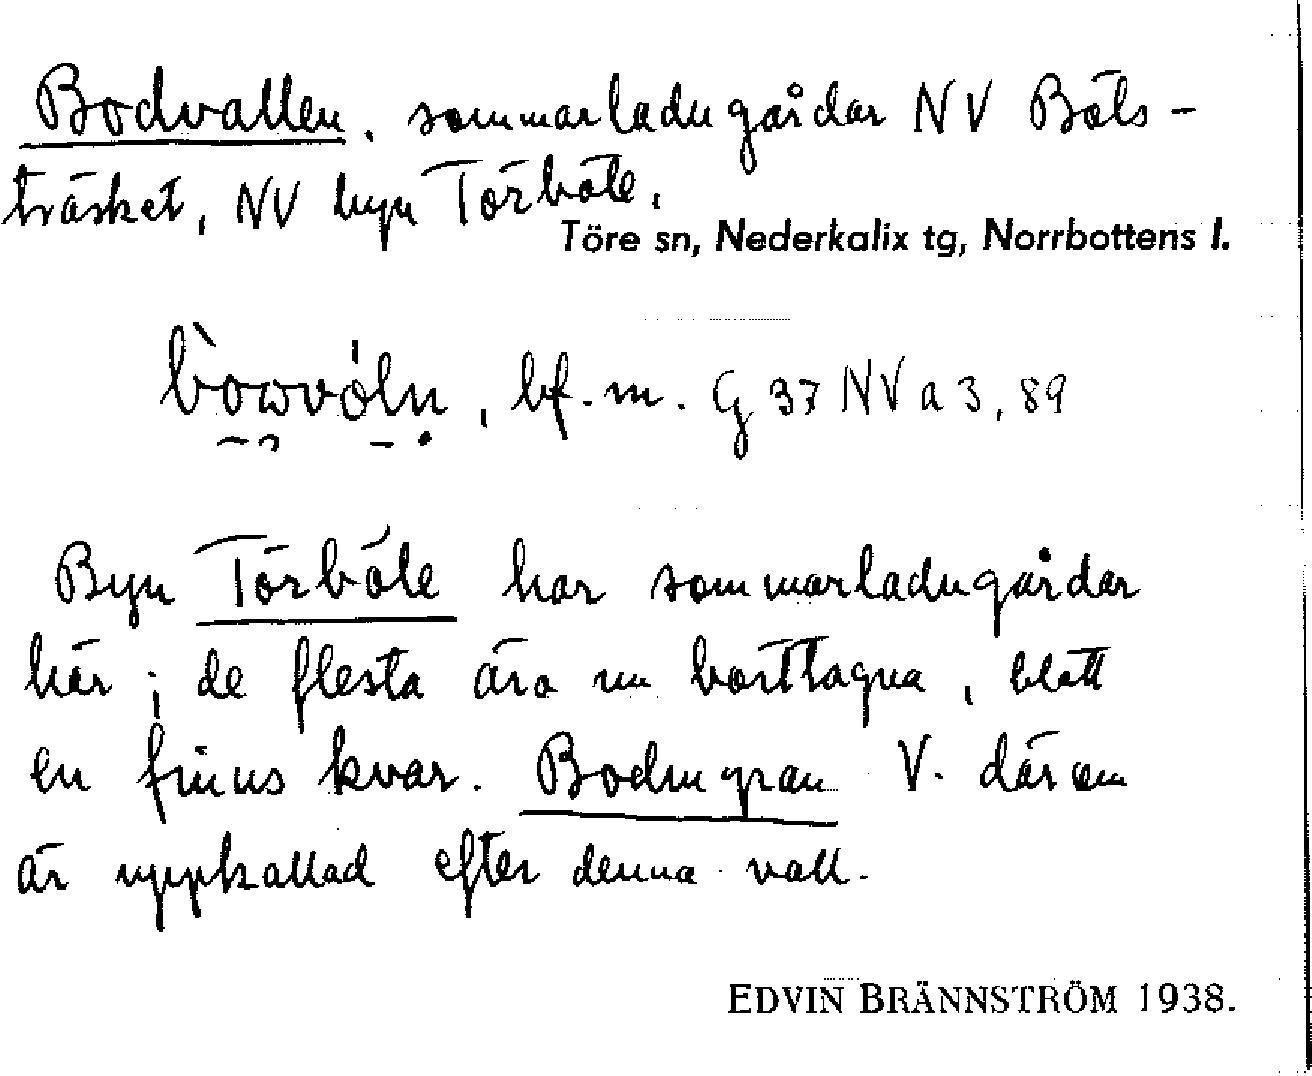 Bodvallen, sommarladugårdar NV Böls-
träsket, NV byn Törböle.
Töre sn, Nederkalix tg, Norrbottens l.
bf. m. G 37 NV a 3, 89
Byn Törböle har sommarladugårdar
här; de flesta äro nu borttagna, blott
en finns kvar. V. därom
är uppkallad efter denna vall.
EDVIN BRÄNNSTRÖM 1938.